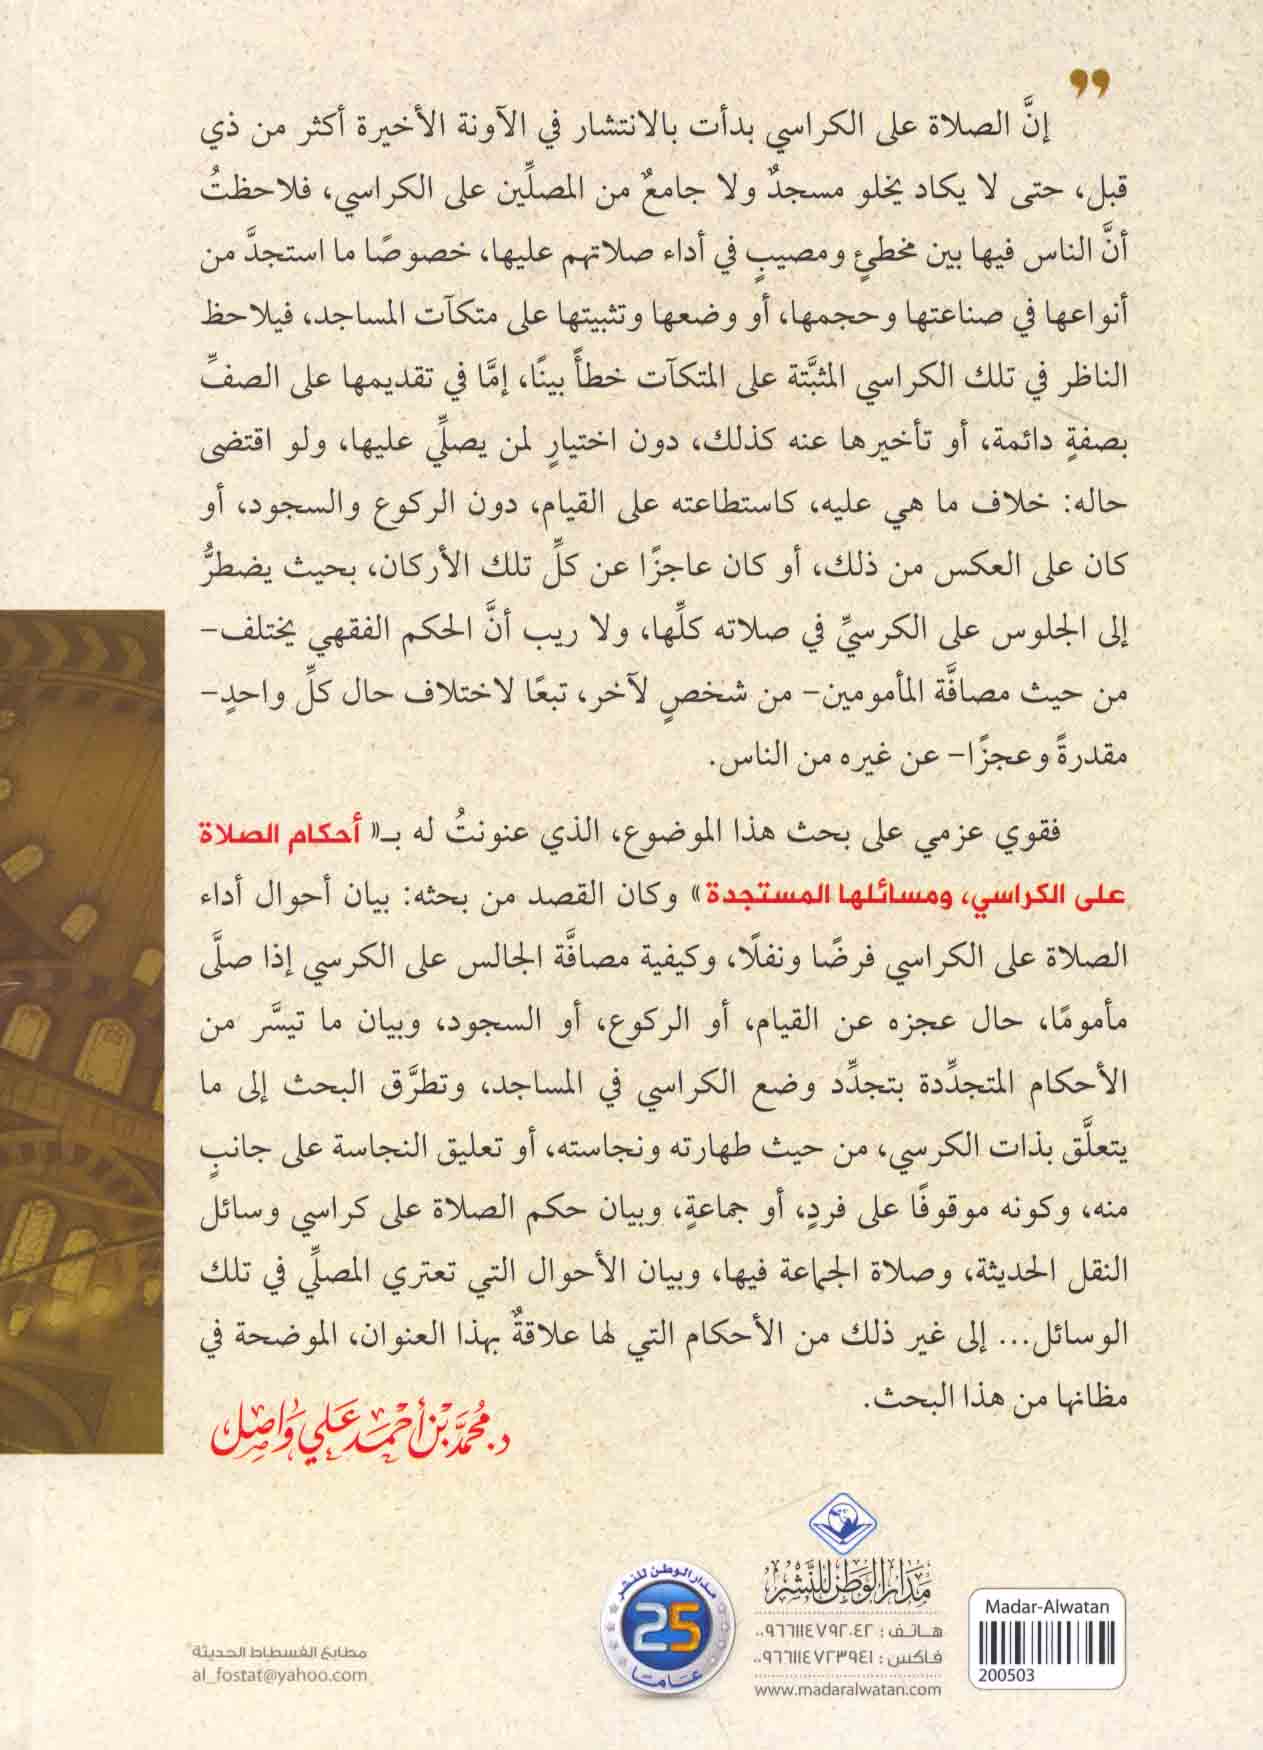 ”
إنَّ الصلاة على الكراسي بدأت بالانتشار في الآونة الأخيرة أكثر من ذي
قبل، حتى لا يكاد يخلو مسجدٌ ولا جامعٌ من المصلِّين على الكراسي، فلاحظتُ
أنَّ الناس فيها بين مخطئٍ ومصيبٍ في أداء صلاتهم عليها، خصوصًا ما استجدَّ من
أنواعها في صناعتها وحجمها، أو وضعها وتثبيتها على متكآت المساجد، فيلاحظ
الناظر في تلك الكراسي المثبَّتة على المتكآت خطأً بينًا، إمَّا في تقديمها على الصفِّ
بصفةٍ دائمة، أو تأخيرها عنه كذلك، دون اختيارٍ لمن يصلِّي عليها، ولو اقتضى
حاله: خلاف ما هي عليه، كاستطاعته على القيام، دون الركوع والسجود، أو
كان على العكس من ذلك، أو كان عاجزًا عن كلِّ تلك الأركان، بحيث يضطرُّ
إلى الجلوس على الكرسيِّ في صلاته كلِّها، ولا ريب أنَّ الحكم الفقهي يختلف-
من حيث مصافَّة المأمومين- من شخصٍ لآخر، تبعًا لاختلاف حال كلِّ واحدٍ-
مقدرةً وعجزًا- عن غيره من الناس.
فقوي عزمي على بحث هذا الموضوع، الذي عنونتُ له بـ« أحكام الصلاة
على الكراسي، ومسائلها المستجدة» وكان القصد من بحثه: بيان أحوال أداء
الصلاة على الكراسي فرضًا ونفلًا، وكيفية مصافَّة الجالس على الكرسي إذا صلَّى
مأمومًا، حال عجزه عن القيام، أو الركوع، أو السجود، وبيان ما تيسَّر من
الأحكام المتجدِّدة بتجدِّد وضع الكراسي في المساجد، وتطرَّق البحث إلى ما
يتعلَّق بذات الكرسي، من حيث طهارته ونجاسته، أو تعليق النجاسة على جانبٍ
منه، وكونه موقوفًا على فردٍ، أو جماعةٍ، وبيان حكم الصلاة على كراسي وسائل
النقل الحديثة، وصلاة الجماعة فيها، وبيان الأحوال التي تعتري المصلِّي في تلك
الوسائل... إلى غير ذلك من الأحكام التي لها علاقةٌ بهذا العنوان، الموضحة في
مظانها من هذا البحث.
د. محمَّد بن أحمد علي واصل
مدار الوطن للنشر
هاتف : ٠٠٩٦٦١١٤٧٩٢٠٤٢
فاكس : ٠٠٩٦٦١١٤٧٢٣٩٤١
www.madaralwatan.com
مدار الوطن للنشر
25
عاماً
Madar-Alwatan
200503
مطابع الفسطاط الحديثة
al_fostat@yahoo.com